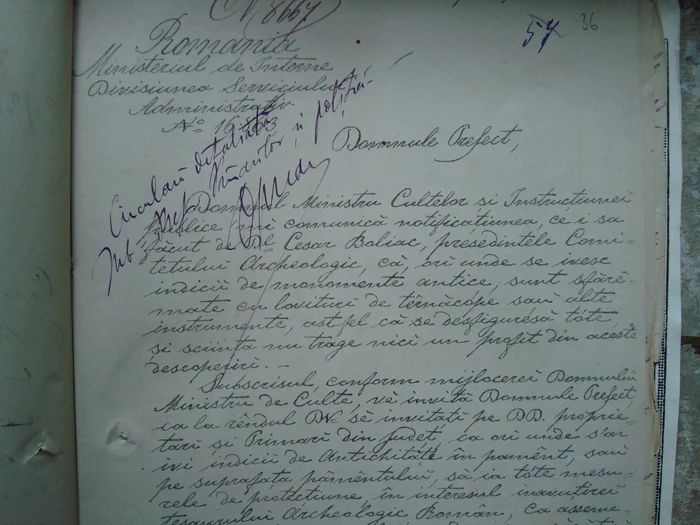 C N 8667
54
36
Romania
Ministeriul de Interne
Divisiunea Serviciului
Administrativ
No 16
Domnule Prefect,
Circulară detaliată
Sub Pref
Domnul Ministru Cultelor și Instructiunei
Publice mi comunică notificațiunea, ce i s'a
făcut de Dl Cesar Boliac, președintele Comi-
tetului Archeologic, că, ori unde se ivesc
indicii de monumente antice, sunt sfărĕ-
mate cu lovituri de tĕrnăcope saŭ alte
instrumente, ast fel că se desfigureséa tóte
și sciința nu trage nici un profit din aceste
descoperiri. -
Subscrisul, conform mijlocerei Domnului
Ministru de Culte, vĕ invită Domnule Prefect,
ca la rĕndul Dv. sĕ invitați pe DD. proprie-
tari și Primari din județ, ca ori unde s'ar
ivi indicii de Antichităte în pament, saŭ
pe suprafața pămentului, să ia tóte mesu-
rele de protecțiune, în interesul inavuțirei
tesaurului Archeologic Român, Ca asseme-